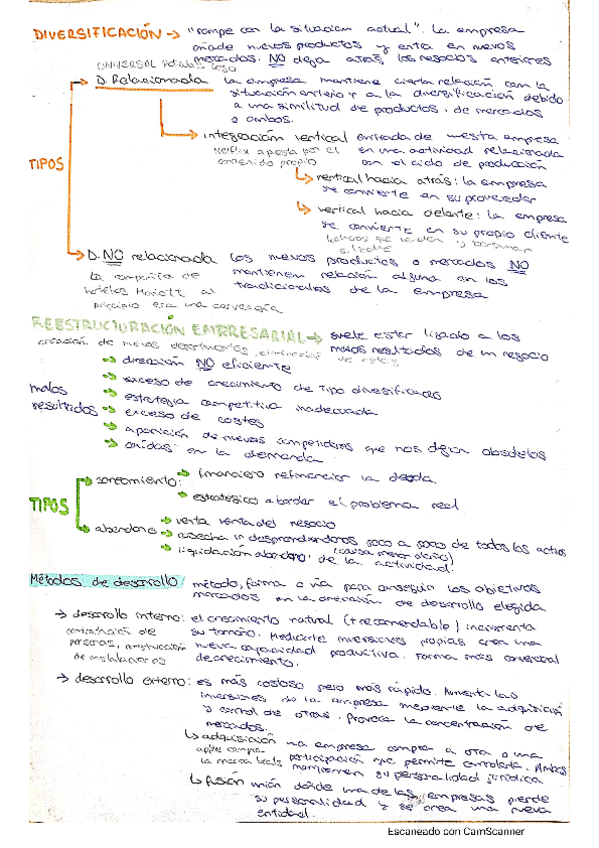 DIVERSIFICACIÓN → "rompe con la situación actual". La empresa
añade nuevos productos y entra en nuevos
mercados. NO deja atrás los negocios anteriores
UNIVERSAL
D. Relacionada la empresa mantiene cierta relación con la
situación anterior y a la diversificación debido
a una similitud de productos, de mercados
o ambos.
TIPOS
integración vertical entrada de nuestra empresa
Netflix apuesta por el en una actividad relacionada
contenido propio con el ciclo de producción
vertical hacia atrás: la empresa
se convierte en su proveedor
vertical hacia delante: la empresa
se convierte en su propio cliente
D. NO relacionada los nuevos productos o mercados NO
La compañía de mantienen relación alguna con los
hoteles Mariott al tradicionales de la empresa
principio era una cervecería
REESTRUCTURACIÓN EMPRRESARIAL → suele estar ligado a los
creación de nuevos departamentos, malos resultados de un negocio
malos
resultados
→ dirección NO eficiente
→ exceso de crecimiento de tipo diversificado
→ estrategia competitiva inadecuada
→ exceso de costes
→ aparición de nuevos competidores que nos dejan obsoletos
→ caídas en la demanda
TIPOS
→ saneamiento: → financiero refinanciar la deuda
→ estratégico abordar el problema real
→ abandono → venta venta del negocio
→ cosecha ir desprendiéndonos poco a poco de todos los activos
→ liquidación abandono de la actividad (causa menor daño)
Métodos de desarrollo: método, forma o vía para conseguir los objetivos
marcados en la dirección de desarrollo elegida
→ desarrollo interno: el crecimiento natural (+ recomendable) incrementa
contratación de su tamaño. Mediante inversiones propias crea una
personas, construcción nueva capacidad productiva. Forma más
de instalaciones de crecimiento.
→ desarrollo externo: es más costoso pero más rápido. Aumenta las
inversiones de la empresa mediante la adquisición
y control de otras. Provoca la concentración de
mercados.
adquisición una empresa compra a otra o una
apple compra participación que permite controlarla. Ambas
la marca beats mantienen su personalidad jurídica
fusión unión donde una de las empresas pierde
su personalidad y se crea una nueva
entidad.
Escaneado con CamScanner